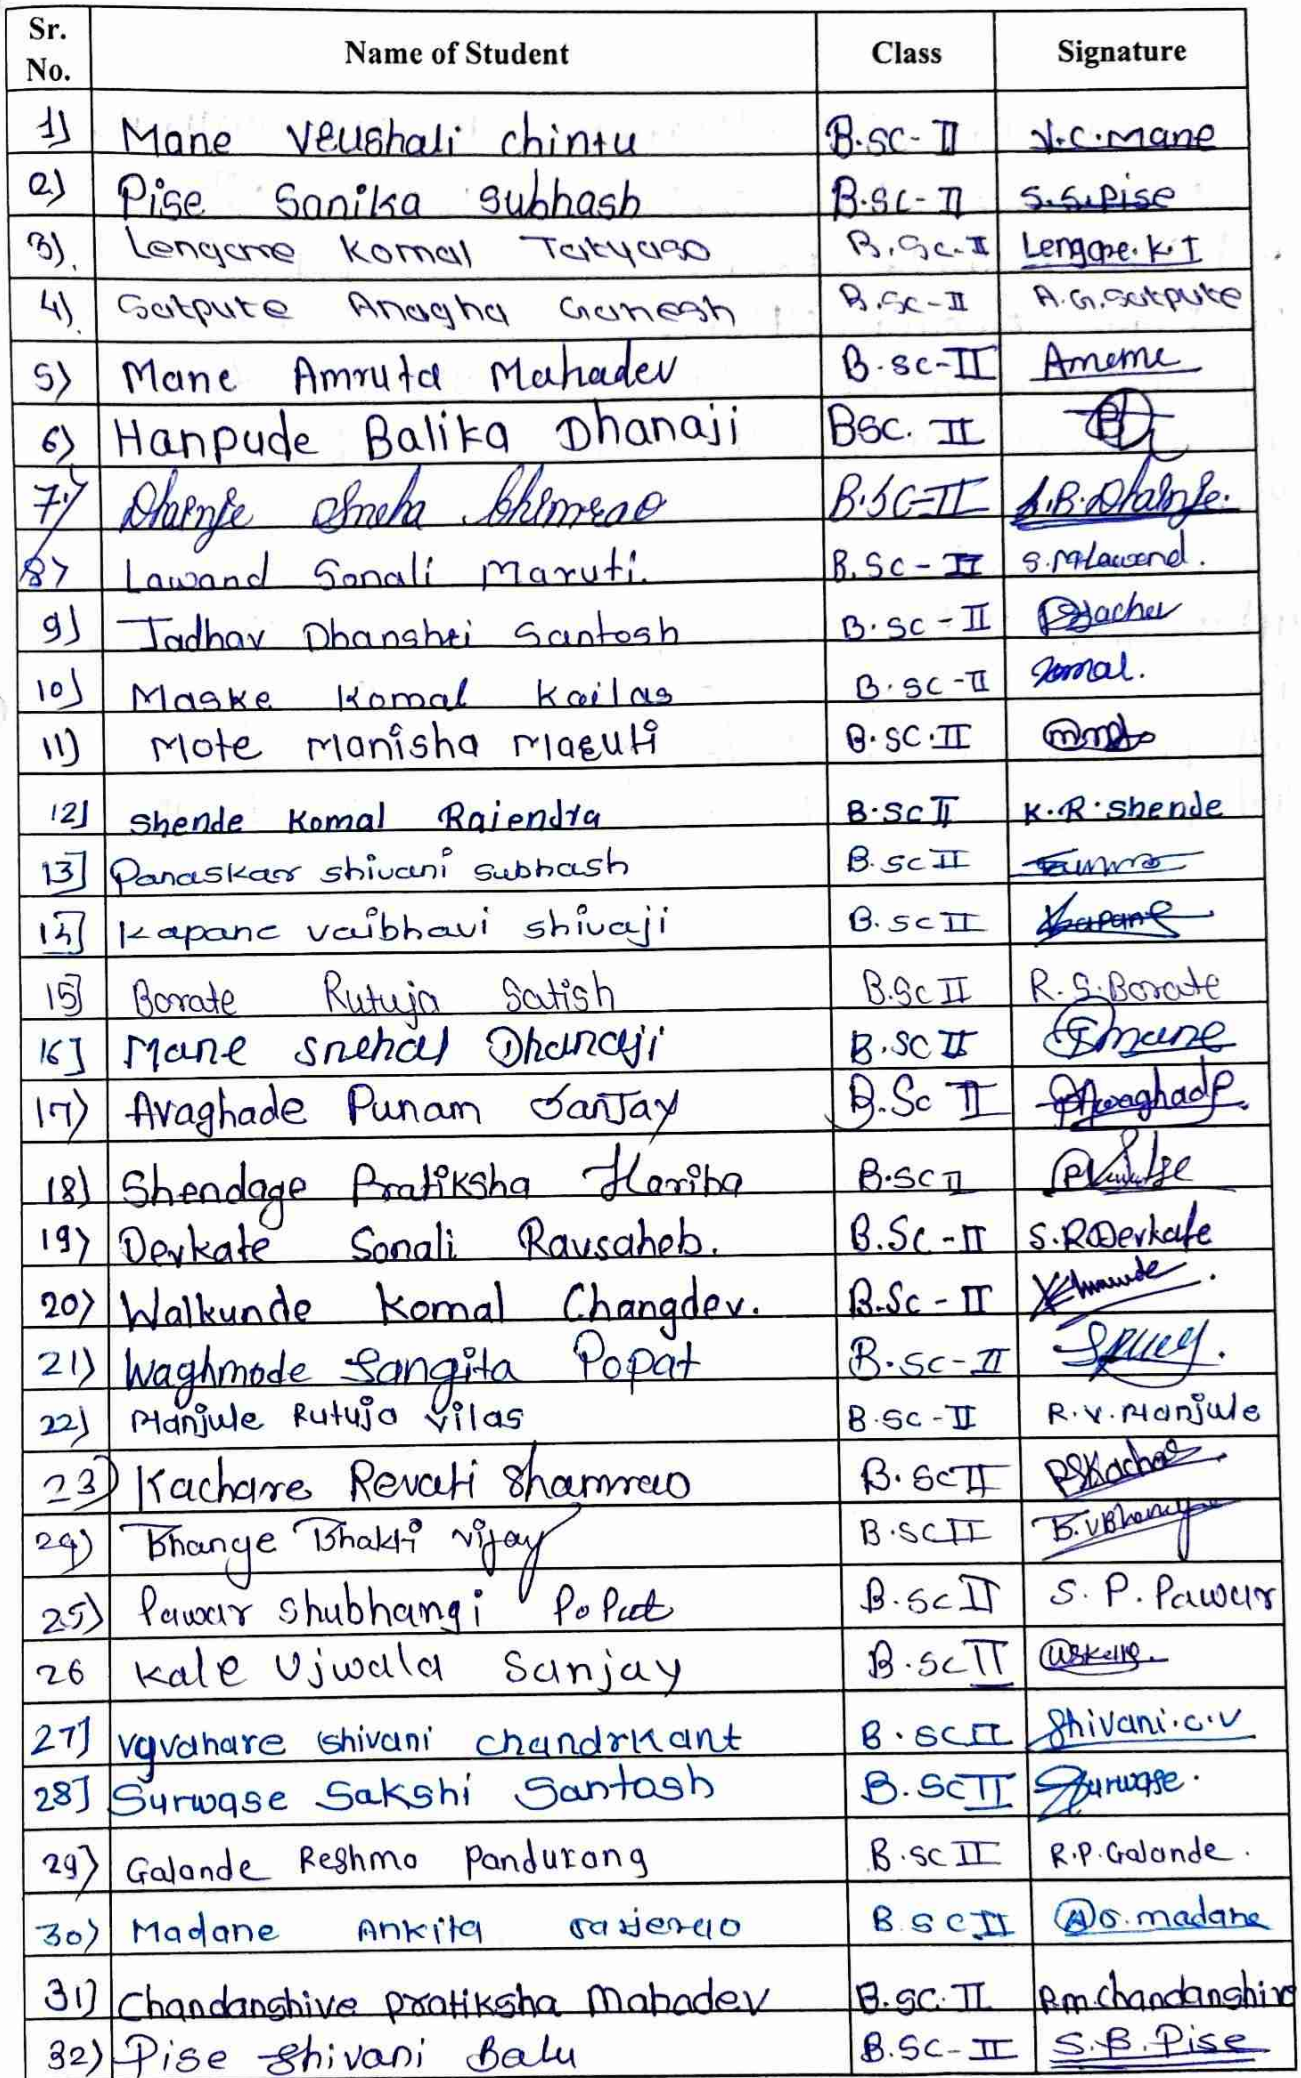 Sr. No. Name of Student Class Signature
1) Mane Veushali chintu B.sc-II V.C.Mane
2) Pise Sanika Subhash B.sc-II S.S.Pise
3) Lengare Komal Tatyaso B.Sc-II Lengare.K.T
4) Satpute Anagha Ganesh B.Sc-II A.G.Satpute
5) Mane Amruta Mahadev B.sc-II
6) Hanpude Balika Dhanaji BSC. II
7) Dhainje Sneha bhimrao B.SC-II S.B.Dhainje.
8) Lawand Sonali Maruti. B.Sc-II S.M.Lawand.
9) Jadhav Dhanshri Santosh B.sc-II
10) Maske Komal Kailas B.sc-II Komal.
11) Mote Manisha Maruti B.SC.II
12] Shende Komal Rajendra B.Sc II K.R.Shende
13] Panaskar shivani subhash B.sc II
14] Kapane vaibhavi shivaji B.sc II Kapane
15] Borate Rutuja Satish B.Sc II R.S.Borate
16] Mane Snehal Dhanaji B.SC II Smane
17) Avaghade Punam Sanjay B.Sc II PAvaghade.
18) Shendage Pratiksha Hariba B.sc II
19) Devkate Sonali Ravsaheb. B.Sc-II S.R.Devkate
20) Walkunde Komal Changdev. B.Sc-II
21) Waghmode Sangita Popat B.sc-II
22) Manjule Rutuja Vilas B.sc-II R.V.Manjule
23) Kachare Revati Shamrao B.ScII
24) Bhange Bhakti vijay B.SCII B.VBhange
25) Pawar Shubhangi Popat B.Sc II S.P.Pawar
26 Kale Ujwala Sanjay B.sc II
27] vyvahare Shivani chandrkant B.SCII Shivani.c.v
28] Surwase Sakshi Santosh B.ScII Surwase.
29) Galande Reshma Pandurang B.sc II R.P.Galande.
30) Madane Ankita Sarjerao B.SC II A.S.madane
31) Chandanshive pratiksha Mahadev B.SC.II P.m.chandanshive
32) Pise Shivani Balu B.SC-II S.B.Pise